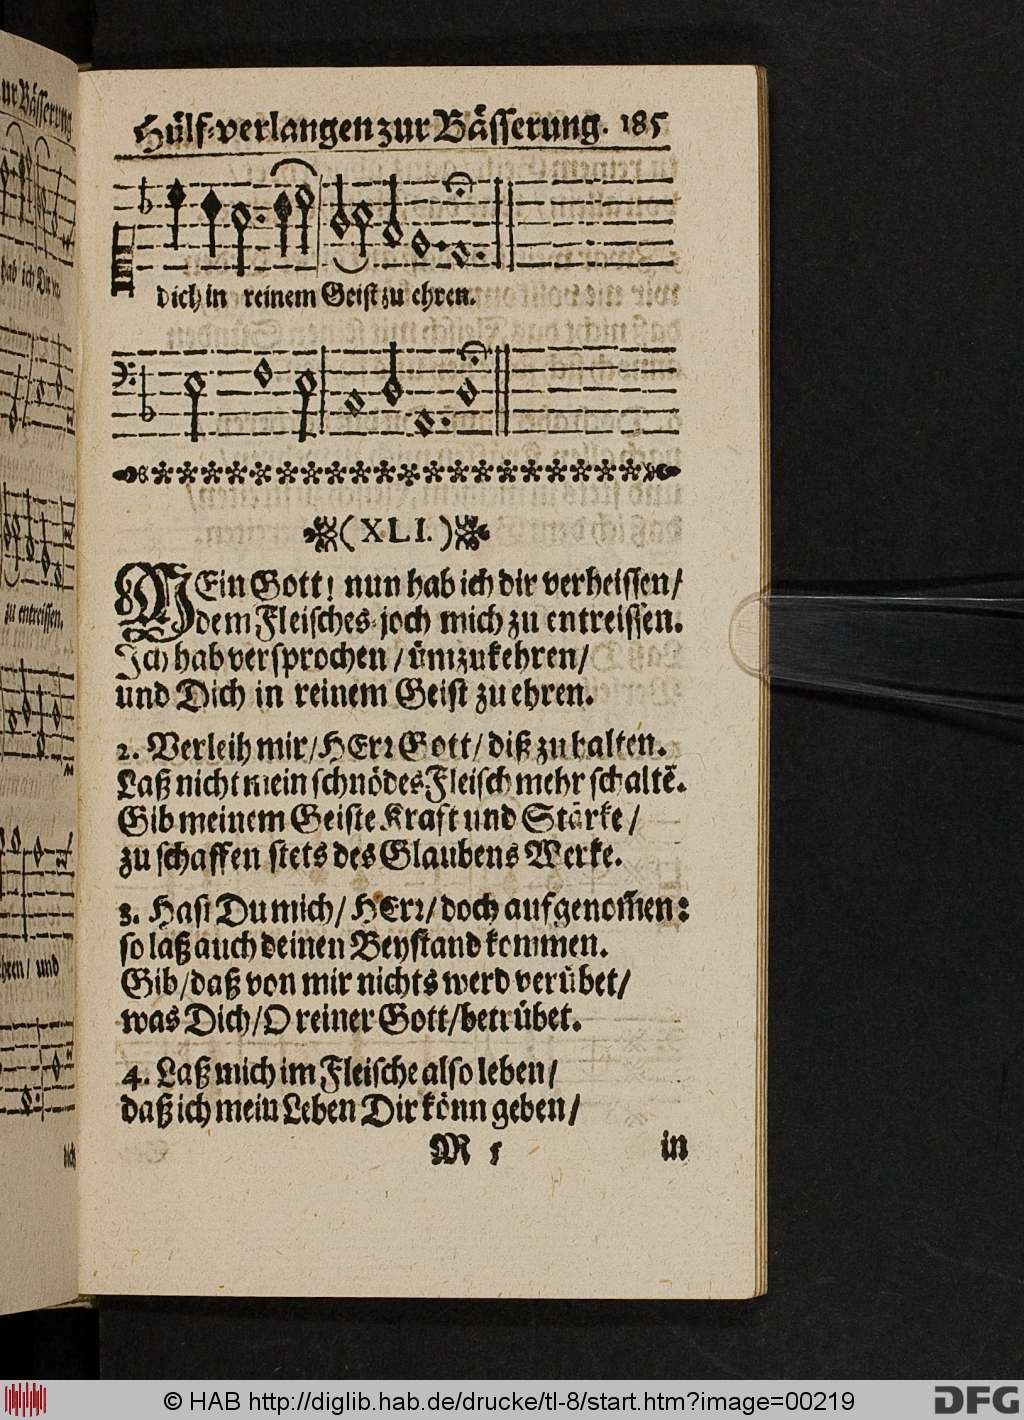 Hülf-verlangen zur Bässerung. 185
dich in reinem Geist zu ehren.
(XLI.)
MEin Gott! nun hab ich dir verheissen/
dem Fleisches-joch mich zu entreissen.
Ich hab versprochen/ ümzukehren/
und Dich in reinem Geist zu ehren.
2. Verleih mir/ HErr Gott/ diß zu halten.
Laß nicht mein schnödes Fleisch mehr schaltē.
Gib meinem Geiste Kraft und Stärke/
zu schaffen stets des Glaubens Werke.
3. Hast Du mich/ HErr/ doch aufgenom̃en:
so laß auch deinen Beystand kommen.
Gib/ daß von mir nichts werd verübet/
was Dich/ O reiner Gott/ betrübet.
4. Laß mich im Fleische also leben/
daß ich mein Leben Dir könn geben/
M 5 in
ur Bässerung
hab ich Dir
zu entreissen.
hren/ und
© HAB http://diglib.hab.de/drucke/tl-8/start.htm?image=00219
DFG